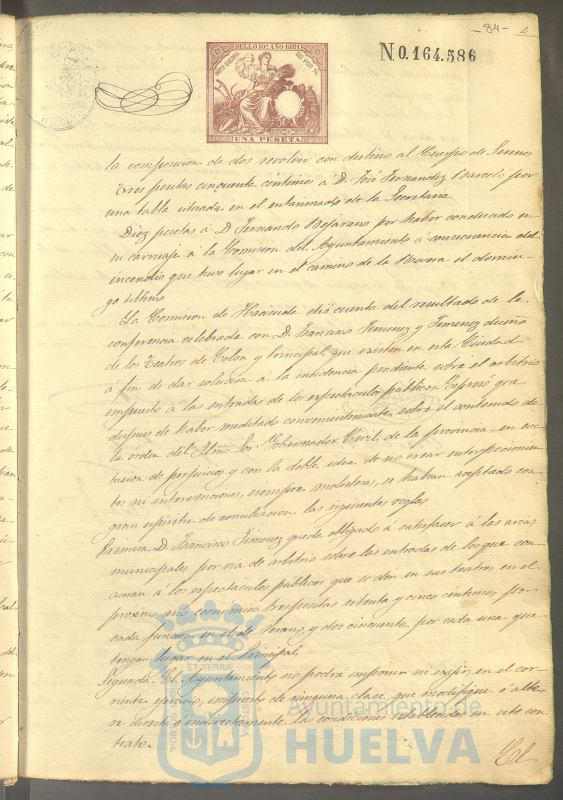 -84-
N 0.164.586
SELLO 10º AÑO 1881
UNA PESETA
la composicion de dos revolver con destino al Cuerpo de Serenos
Tres pesetas cincuenta centimos á D. José Fernandez Barcelo por
una tabla situada en el entarimado de la Secretaría
Diez pesetas á D Fernando Bejarano por haber conducido en
su carruaje á la Comision del Ayuntamiento á consecuencia del
incendio que tuvo lugar en el camino de la Rivera el domin-
go último
La Comision de Hacienda dió cuenta del resultado de la
conferencia celebrada con D. Francisco Jimenez y Jimenez dueño
de los Teatros de Colon y Principal, que existen en esta Ciudad
á fin de dar solucion á la incidencia pendiente sobre el arbitrio
impuesto á las entradas de los espectaculos publicos. Espresó que
despues de haber meditado convenientemente sobre el contenido de
la órden del Iltmo Sor Gobernador Civil de la provincia, en evi-
tasion de perjuicios y con la doble idea de no crear entorpecimien-
tos ni intervenciones, siempre molestas, se habian aceptado con
gran espiritu de conciliacion las siguientes reglas
Primera. D. Francisco Jimenez queda obligado á satisfacer á las arcas
municipales por via de arbitrio sobre las entradas de los que con-
curran á los espectáculos publicos que se dén en sus teatros en el
proximo año economico tres pesetas setenta y cinco centimos por
cada funcion en el de Verano, y dos cincuenta por cada una que
tengan lugar en el Principal,
Segunda. El Ayuntamiento no podrá imponer ni exijir en el cor-
riente ejercicio, impuesto de ninguna clase que modifique ó alte-
re directa ó indirectamente las condiciones establecidas en este con-
trato.
El
Ayuntamiento de
HUELVA